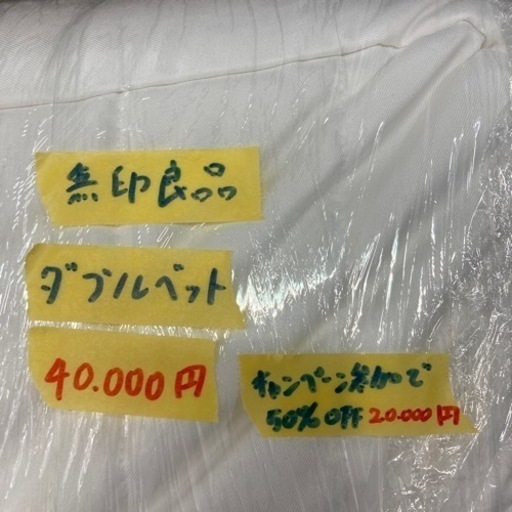 無印良品
ダブルベット
40.000円
キャンペーン参加で
50% OFF 20.000円